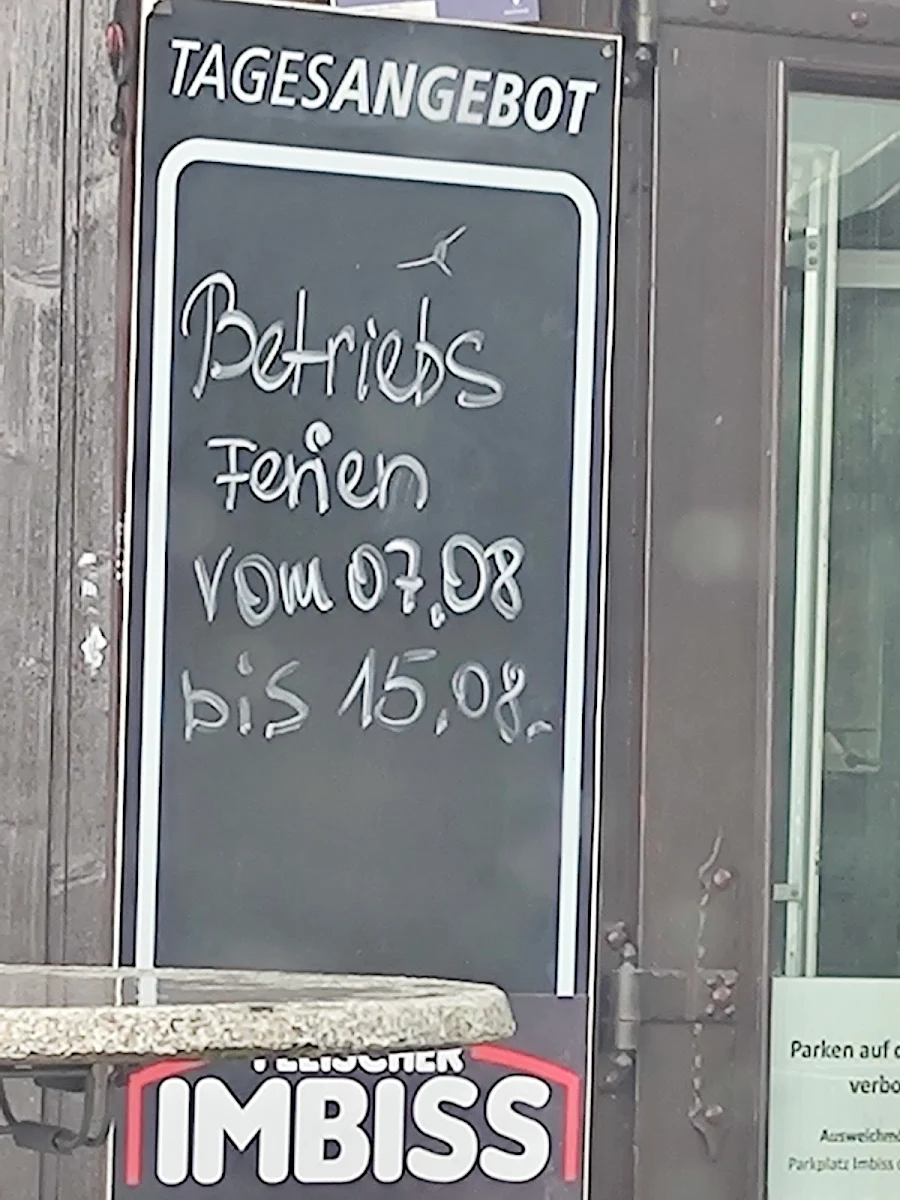 TAGESANGEBOT
Betriebs
Ferien
vom 07.08
bis 15.08.
FLEISCHER
IMBISS
Parken auf
Parkplatz Imbiss